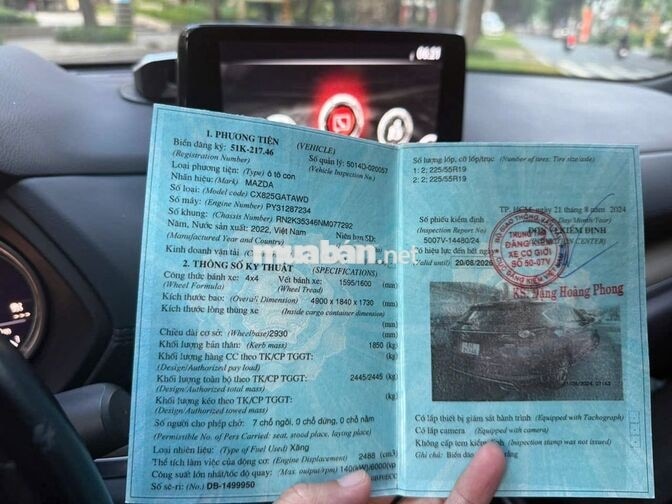 06:21
1. PHƯƠNG TIỆN (VEHICLE)
Biển đăng ký: 51K-217.46 Số quản lý: 5014D-020057
(Registration Number) (Vehicle Inspection No.)
Loại phương tiện: (Type) ô tô con
Nhãn hiệu: (Mark) MAZDA
Số loại: (Model code) CX825GATAWD
Số máy: (Engine Number) PY31287234
Số khung: (Chassis Number) RN2K35346NM077292
Năm, Nước sản xuất: 2022, Việt Nam Niên hạn SD:
(Manufactured Year and Country)
Kinh doanh vận tải
2. THÔNG SỐ KỸ THUẬT (SPECIFICATIONS)
Công thức bánh xe: 4x4 Vết bánh xe: 1595/1600 (mm)
(Wheel Formula) (Wheel Tread)
Kích thước bao: (Overall Dimension) 4900 x 1840 x 1730 (mm)
Kích thước lòng thùng xe (Inside cargo container dimension)
(mm)
Chiều dài cơ sở: (Wheelbase) 2930 (mm)
Khối lượng bản thân: (Kerb mass) 1850 (kg)
Khối lượng hàng CC theo TK/CP TGGT: (kg)
(Design/Authorized pay load)
Khối lượng toàn bộ theo TK/CP TGGT: 2445/2445 (kg)
(Design/Authorized total mass)
Khối lượng kéo theo TK/CP TGGT: (kg)
(Design/Authorized towed mass)
Số người cho phép chở: 7 chỗ ngồi, 0 chỗ đứng, 0 chỗ nằm
(Permissible No. of Pers Carried: seat, stood place, laying place)
Loại nhiên liệu: (Type of Fuel Used) Xăng
Thể tích làm việc của động cơ: (Engine Displacement) 2488 (cm3)
Công suất lớn nhất/tốc độ quay: (Max. output/rpm) 140(kW)/6000vph
Số sê-ri: (No.) DB-1499950
Số lượng lốp, cỡ lốp/trục (Number of tires: Tire size/axle)
1: 2; 225/55R19
2: 2; 225/55R19
TP. HCM, ngày 21 tháng 8 năm 2024
Số phiếu kiểm định (Day/Month/Year)
(Inspection Report No) ĐƠN VỊ KIỂM ĐỊNH
5007V-14480/24 CENTER)
Có hiệu lực đến hết ngày
(Valid until) 20/08/2026
TRUNG TÂM
ĐĂNG KIỂM
XE CƠ GIỚI
SỐ 50-07V
KS. Đặng Hoàng Phong
muaban.net
Có lắp thiết bị giám sát hành trình (Equipped with Tachograph)
Có lắp camera (Equipped with camera)
Không cấp tem kiểm định (Inspection stamp was not issued)
Ghi chú: Biển đăng trắng